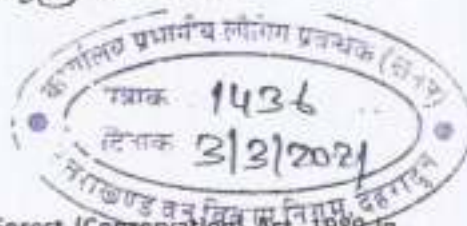 कार्यालय प्रभागीय लौगिंग प्रबन्धक
पत्रांक 1436
दिनांक 3/3/2021
उत्तराखण्ड वन विकास निगम, देहरादून
Forest (Conservation) Act, 1980 in